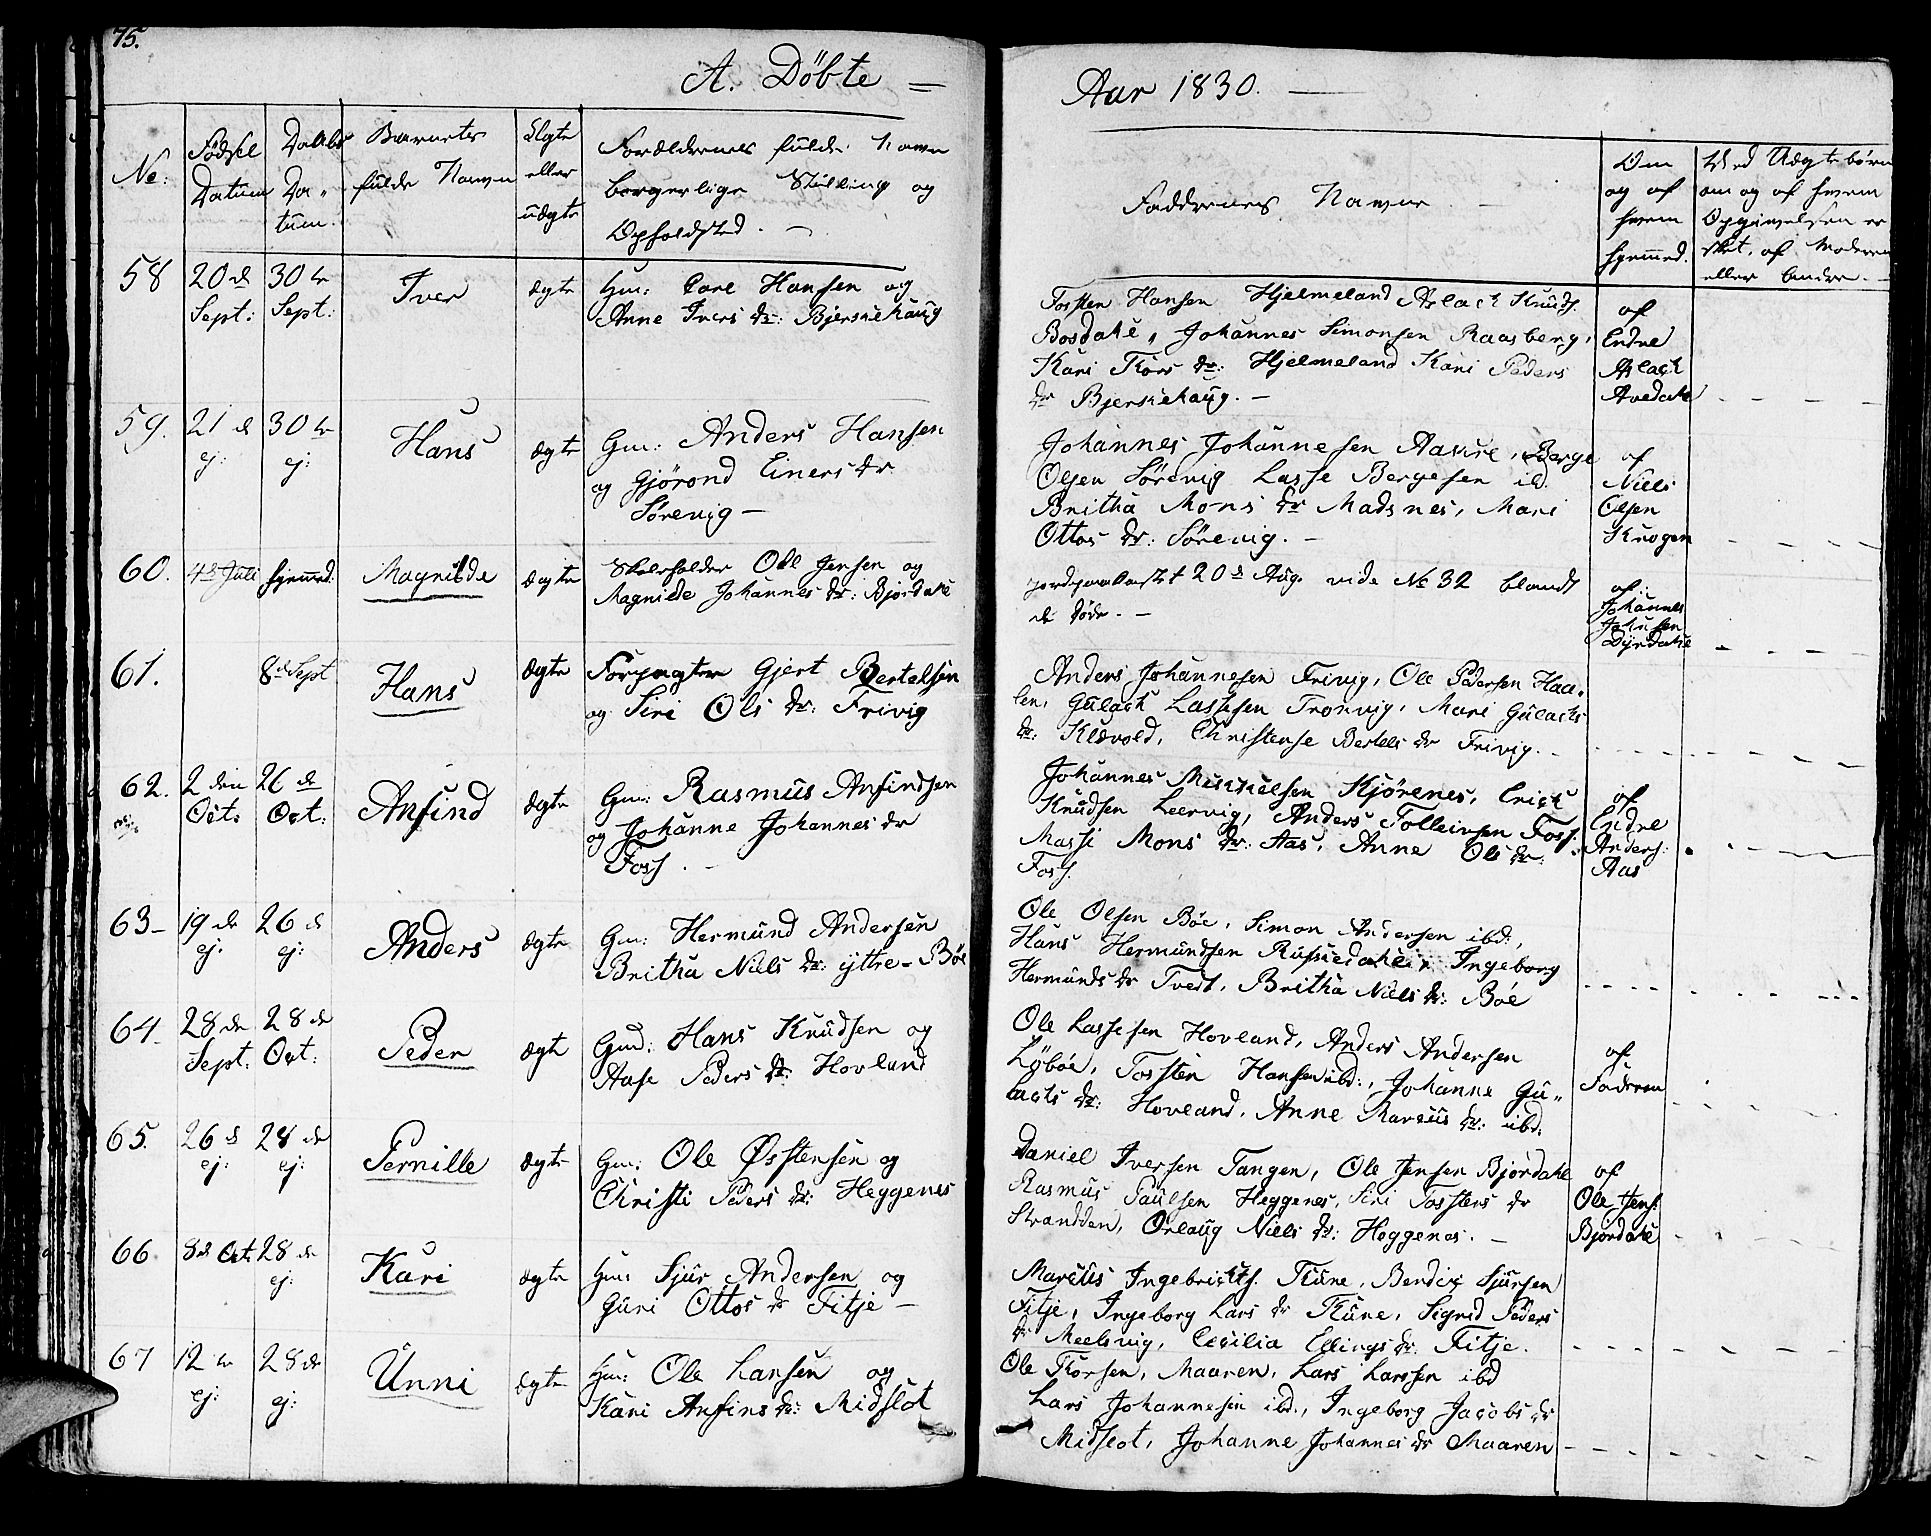 75.
A. Döbte =
No:
Födsel
Datum
Daabs
Da„
tum.
Barnets
fulde Navn
Ægte
eller
uægte
Forældrenes fulde Navn
borgerlige Stilling og
Opholdsted. —
58 20de 30te Iver ægte Gm: Hansen og
Sept: Sept: Anne Ivers dr: Bjerkehaug
59. 21de 30te Hans ægte Gm: Anders Hansen
ej: ej: og Gjørond Einers dr
Sörevig —
60. 4de Juli hjemmed: Magnilde ægte Skoleholder Ole Jensen og
Magnilde Johannes dr: Bjordale
61. 8de Sept Hans ægte Forpagter Gjert Bertelsen
og Siri Ols dr: Frivig
62. 2den 26de Anfind ægte Gm: Rasmus Anfindsen
Oct: Oct: og Johanne Johannes dr
Foss. —
63— 19de 26de Anders ægte Gm: Hermund Andersen
ej: ej: Britha Niels dr: yttre-Böe
64. 28de 28de Peder ægte Gmd: Hans Knudsen og
Sept: Oct: Aase Peders dr: Hovland
65. 26de 28de Pernille ægte Gm: Ole Østensen og
ej: ej: Christi Peders dr: Heggenes
66. 8de Oct. 28de Kari ægte Hm: Sjur Andersen og
ej: Guri Ottos dr Fitje —
67 12te 28de Unni ægte Hm: Ole Larsen og
ej: ej: Kari Anfins dr: Midflot
Aar 1830. —
Faddernes Navne —
Om
og af
hvem
hjemmed.
Ved Uægte börn
om og af hvem
Opgivelsen er
skeet, af Moderen
eller Andre. —
Tosten Hansen Hjelmeland Aslack Knuds.
Bosdale, Johannes Simonsen Raasberg,
Kari Thors dr: Hjelmeland Kari Peders
dr Bjerkehaug. —
af
Endre
Aslack
Johannes Johannesen Berge
Olsen Sörevig Lasse Bergesen ibd.
Britha Mons dr Madsnes, Mari
Ottos dr: Sörevig. —
af
Niels
Olsen
Krogen
jordpaakastet 20de Aug. vide No 32 blandt
de döde. —
af:
Johannes
Johnsen
Dyrdahl
Anders Johannesen Frivig, Ole Pedersen Haa„
len, Gulack Lassesen Tronvig, Mari Gulacks
dr: Klævold, Christense Bertels dr Frivig.
Johannes Mikkelsen Kjørenes, Erick
Knudsen Leervig, Anders Tolleivsen Foss.
Massi Mons dr: Aas, Anne Ols dr:
Foss.
af
Endre
Anders:
Aas
Ole Olsen Böe, Simon Andersen ibd:,
Hans Hermundsen Ingeborg
Hermunds dr Tveit, Britha Niels dr: Böe
Ole Lassesen Hovland, Anders Andersen
Løböe, Tosten Hansen ibd:, Johanne Gu„
lacks dr: Hovland, Anne Marcus dr: ibd:
af
Faderen
Daniel Iversen Tangen, Ole Jensen Bjordale
Rasmus Paulsen Heggenes, Siri Tostens dr
Strandden, Orlaug Niels dr: Heggenes. —
af
Ole Jens:
Bjordale
Marcus Ingebricts. Thune, Bendix Sjursen
Fitje, Ingeborg Lars dr Thune, Sigrid Peders
dr Meelsvig, Cecilia Ellings dr: Fitje.
Ole Thorsen, Maaren, Lars Larssen ibd
Lars Johannesen ibd:, Ingeborg Jacobs dr
Midflot, Johanne Johannes dr Maaren